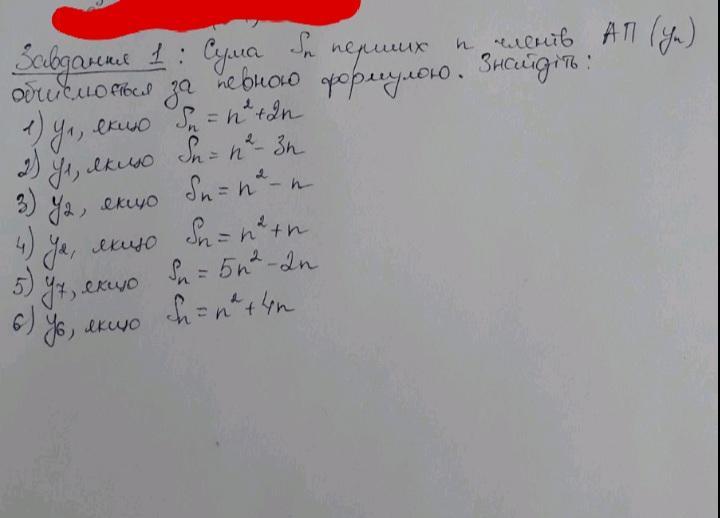 Завдання 1: Сума Sn перших n членів АП (yn)
обчислюється за певною формулою. Знайдіть:
1) y₁, якщо Sn = n² + 2n
2) y₁, якщо Sn = n² - 3n
3) y₂, якщо Sn = n² - n
4) y₂, якщо Sn = n² + n
5) y₇, якщо Sn = 5n² - 2n
6) y₆, якщо Sn = n² + 4n